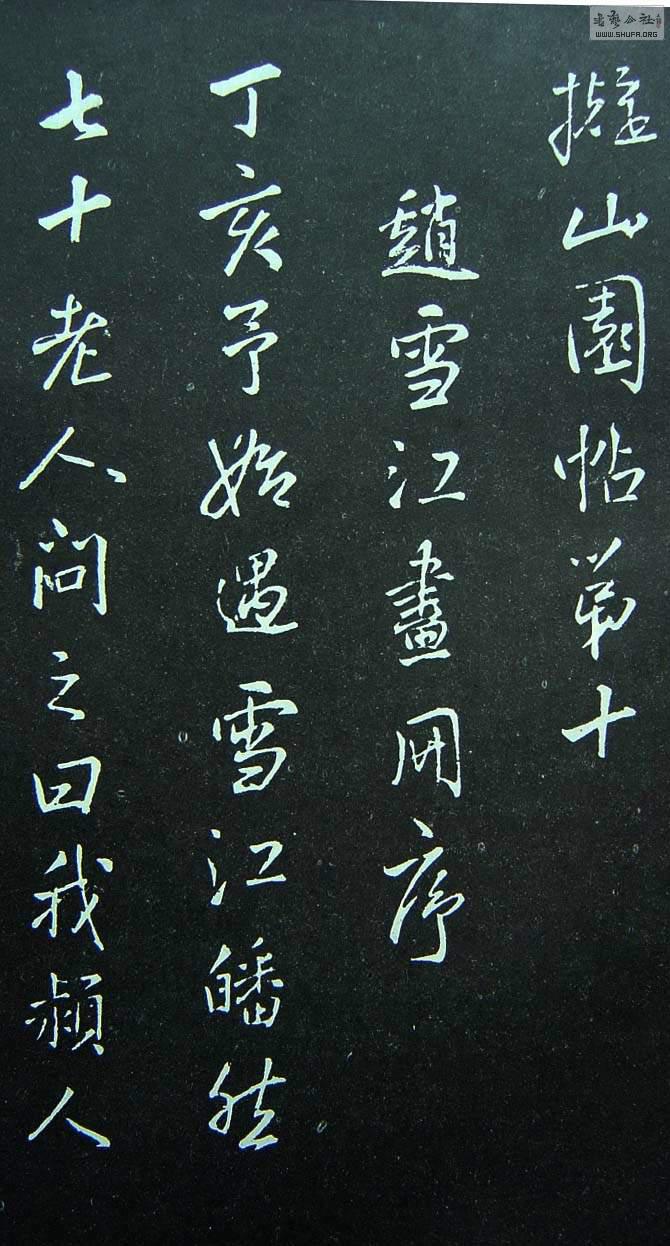 擬山園帖第十
趙雪江畫冊序
丁亥予始遇雪江皤然
七十老人問之曰我潁人
書藝公社
WWW.SHUFA.ORG